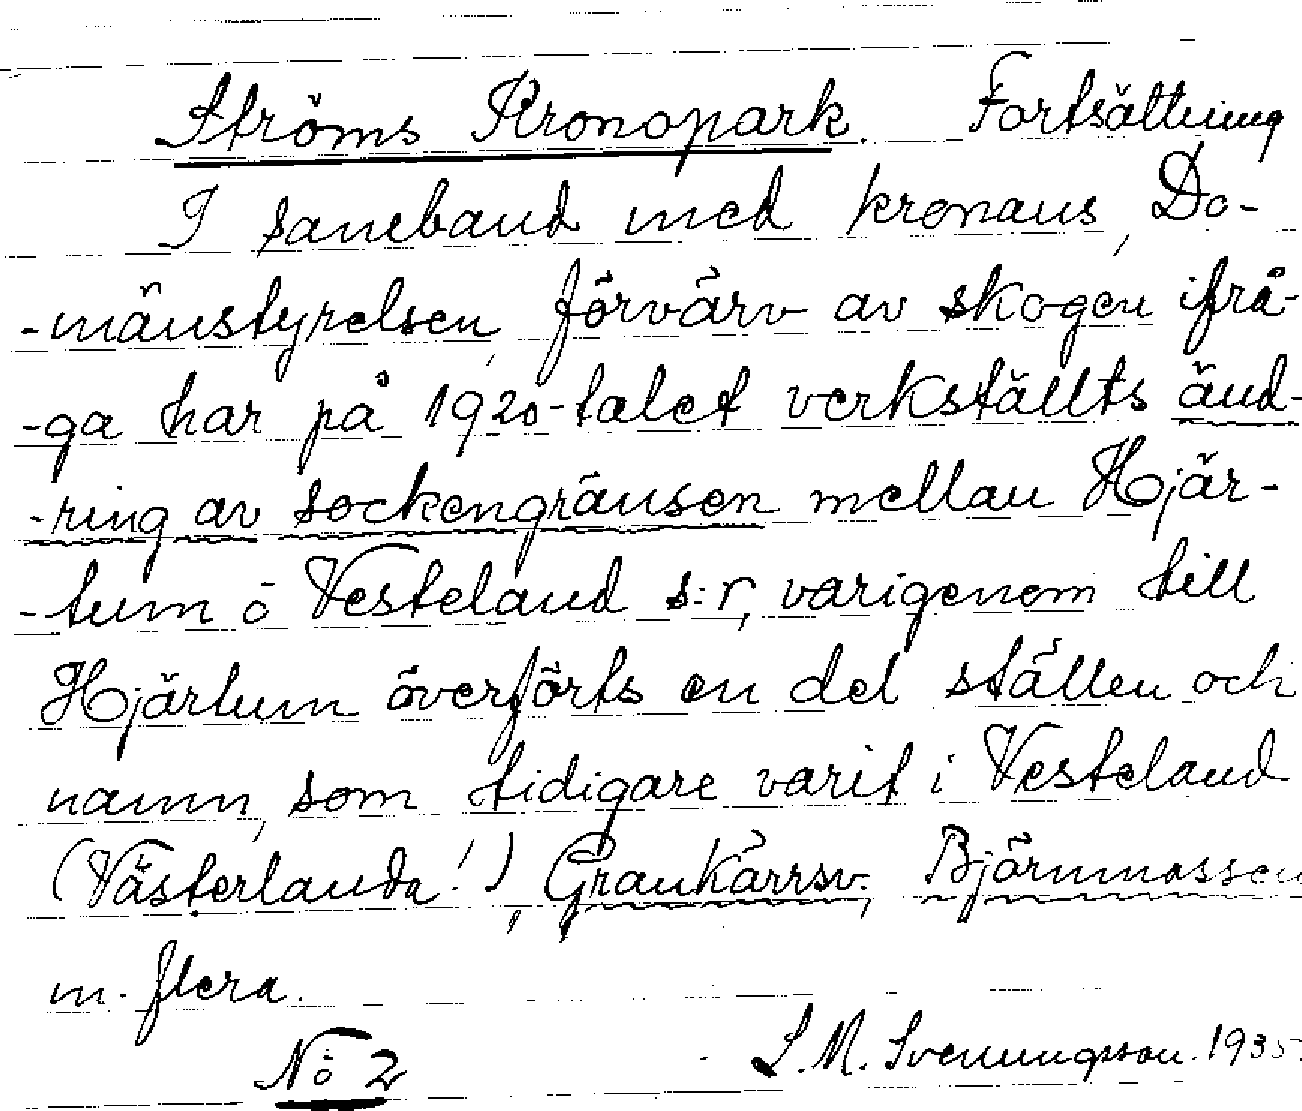 Ströms Kronopark. Fortsättning
I samband med kronans, Do-
-mänstyrelsen, förvärv av skogen ifrå-
-ga har på 1920-talet verkställts änd-
-ring av sockengränsen mellan Hjär-
-tum ö Vesteland s:r, varigenom till
Hjärtum överförts en del ställen och
namn, som tidigare varit i Vesteland
(Västerlanda!), Grankärrsv., Björnmossen
m. flera.
No 2 L. M. Svenungsson. 1935.